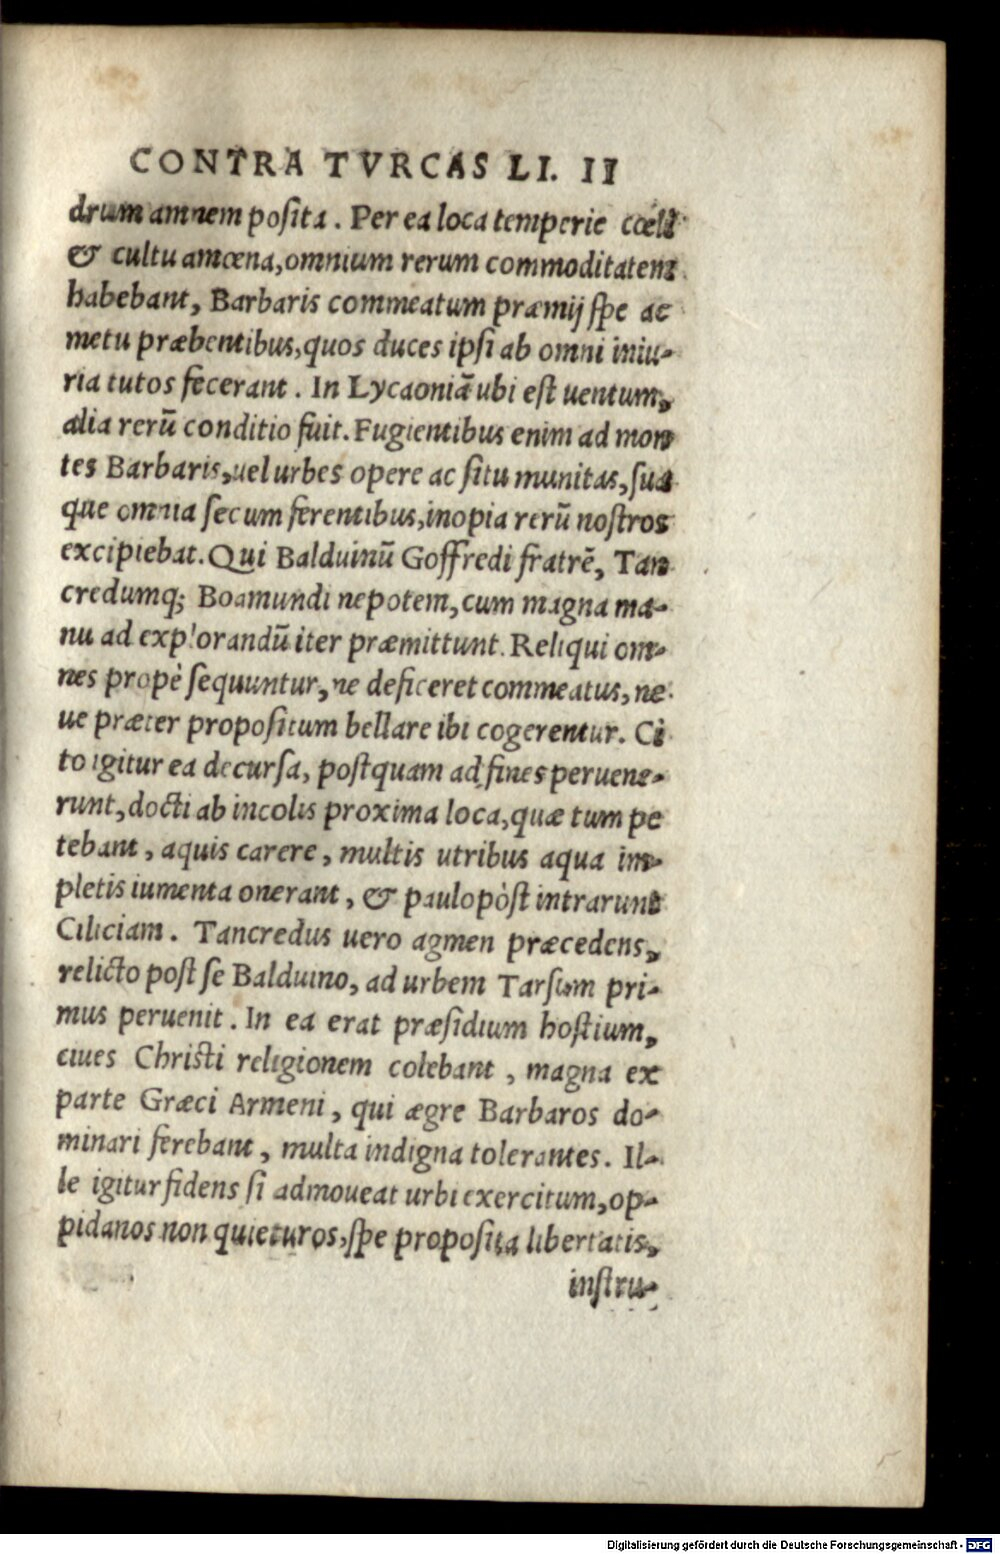 CONTRA TVRCAS LI. II
drum amnem posita. Per ea loca temperie cœli
& cultu amœna, omnium rerum commoditatem
habebant, Barbaris commeatum præmij spe ac
metu præbentibus, quos duces ipsi ab omni iniu-
ria tutos fecerant. In Lycaoniā ubi est uentum,
alia rerū conditio fuit. Fugientibus enim ad mon
tes Barbaris, uel urbes opere ac situ munitas, sua
que omnia secum ferentibus, inopia rerū nostros
excipiebat. Qui Balduinū Goffredi fratrē, Tan
credumq; Boamundi nepotem, cum magna ma-
nu ad explorandū iter præmittunt. Reliqui om-
nes propè sequuntur, ne deficeret commeatus, ne
ue præter propositum bellare ibi cogerentur. Ci
to igitur ea decursa, postquam ad fines peruene-
runt, docti ab incolis proxima loca, quæ tum pe
tebant, aquis carere, multis utribus aqua im-
pletis iumenta onerant, & paulo pòst intrarunt
Ciliciam. Tancredus uero agmen præcedens,
relicto post se Balduino, ad urbem Tarsum pri-
mus peruenit. In ea erat præsidium hostium,
ciues Christi religionem colebant, magna ex
parte Græci Armeni, qui ægre Barbaros do-
minari ferebant, multa indigna tolerantes. Il-
le igitur fidens si admoueat urbi exercitum, op-
pidanos non quieturos, spe proposita libertatis,
instru-
Digitalisierung gefördert durch die Deutsche Forschungsgemeinschaft - DFG